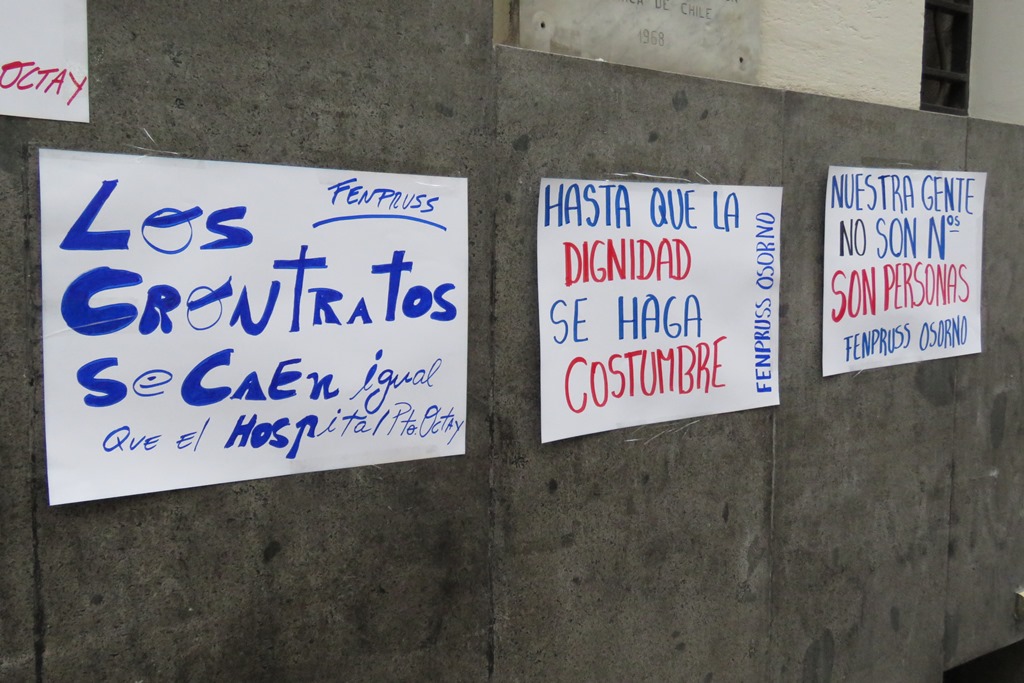 OCTAY
DE CHILE
1968
FENPRUSS
LOS
CRONTRATOS
Se CAEn igual
QUE El HOSpital Pto. OCTAY
HASTA QUE LA
DIGNIDAD
SE HAGA
COSTUMBRE
FENPRUSS OSORNO
NUESTRA GENTE
NO SON Nºs
SON PERSONAS
FENPRUSS OSORNO